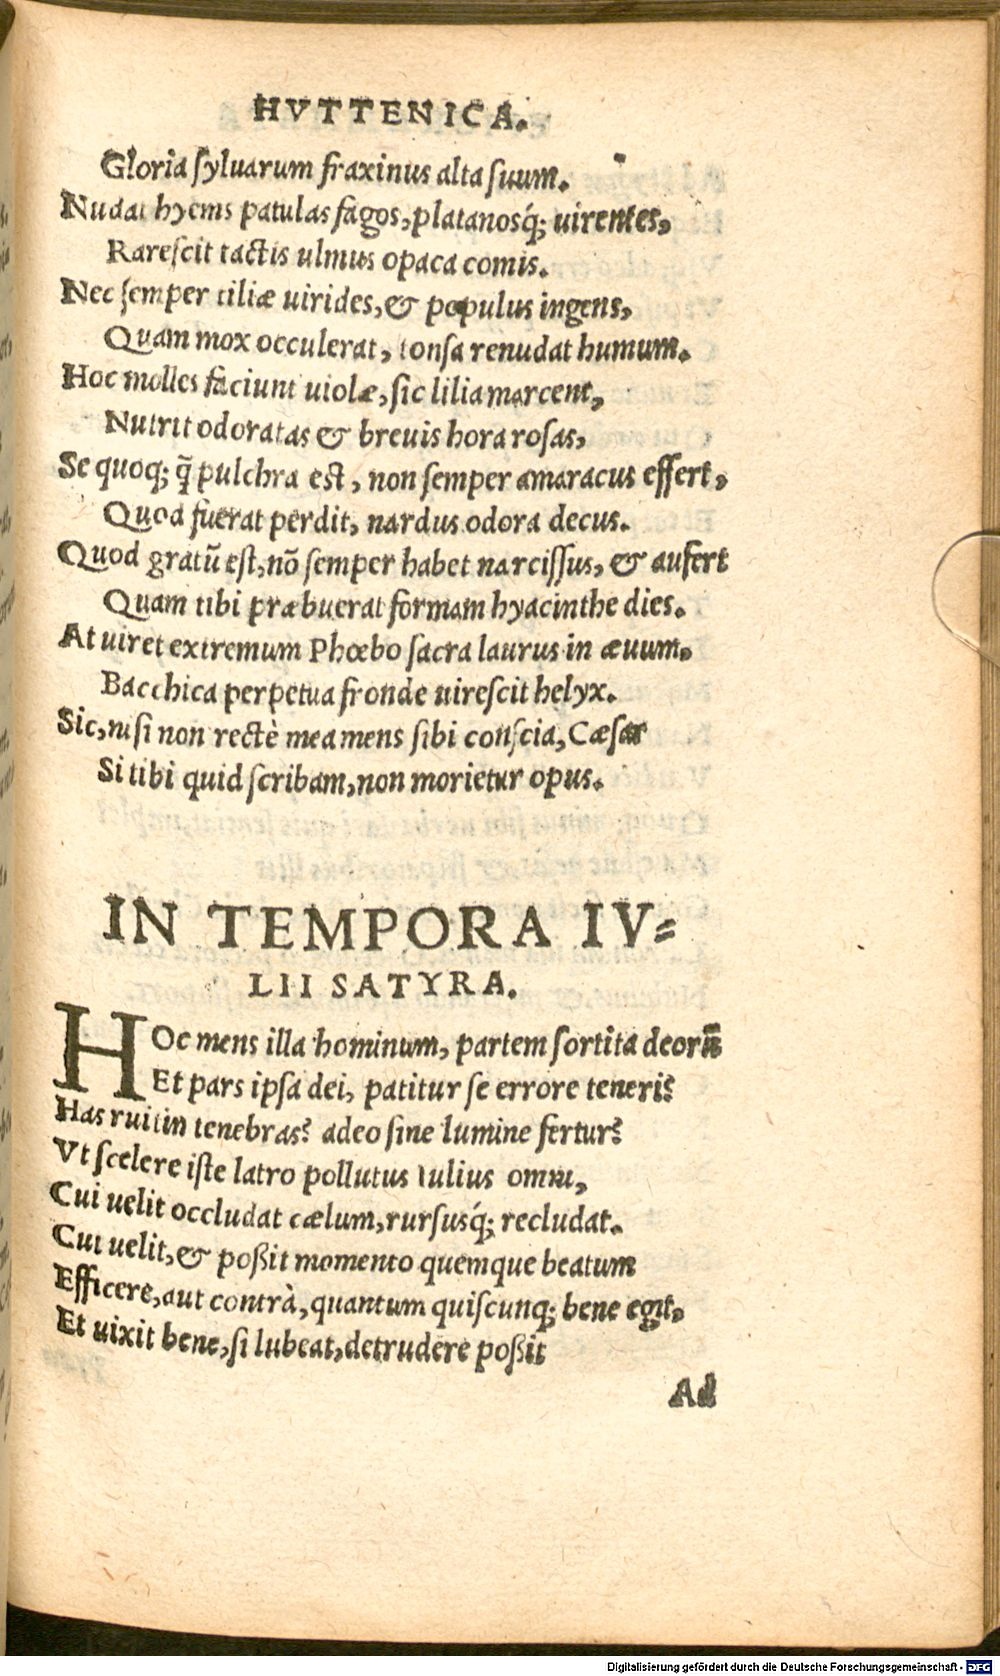 HVTTENICA.
Gloria ſyluarum fraxinus alta ſuum.
Nudat hyems patulas fagos, platanosq́; uirentes,
Rareſcit tactis ulmus opaca comis.
Nec ſemper tiliæ uirides, & populus ingens,
Quam mox occulerat, tonſa renudat humum.
Hoc molles faciunt uiolæ, ſic lilia marcent,
Nutrit odoratas & breuis hora roſas,
Se quoq; q̃ pulchra eſt, non ſemper amaracus effert,
Quod fuerat perdit, nardus odora decus.
Quod gratũ eſt, nõ ſemper habet narciſſus, & aufert
Quam tibi præbuerat formam hyacinthe dies.
At uiret extremum Phœbo ſacra laurus in æuum.
Bacchica perpetua fronde uireſcit helyx.
Sic, niſi non rectè mea mens ſibi conſcia, Cæſar
Si tibi quid ſcribam, non morietur opus.
IN TEMPORA IV=
LII SATYRA.
HOc mens illa hominum, partem ſortita deorũ
Et pars ipſa dei, patitur ſe errore teneri?
Has ruit in tenebras? adeo ſine lumine fertur?
Vt ſcelere iſte latro pollutus Iulius omni,
Cui uelit occludat cælum, rurſusq́; recludat.
Cui uelit, & poßit momento quemque beatum
Efficere, aut contrà, quantum quiſcunq; bene egit,
Et uixit bene, ſi lubeat, detrudere poßit
Ad
Digitalisierung gefördert durch die Deutsche Forschungsgemeinschaft - DFG